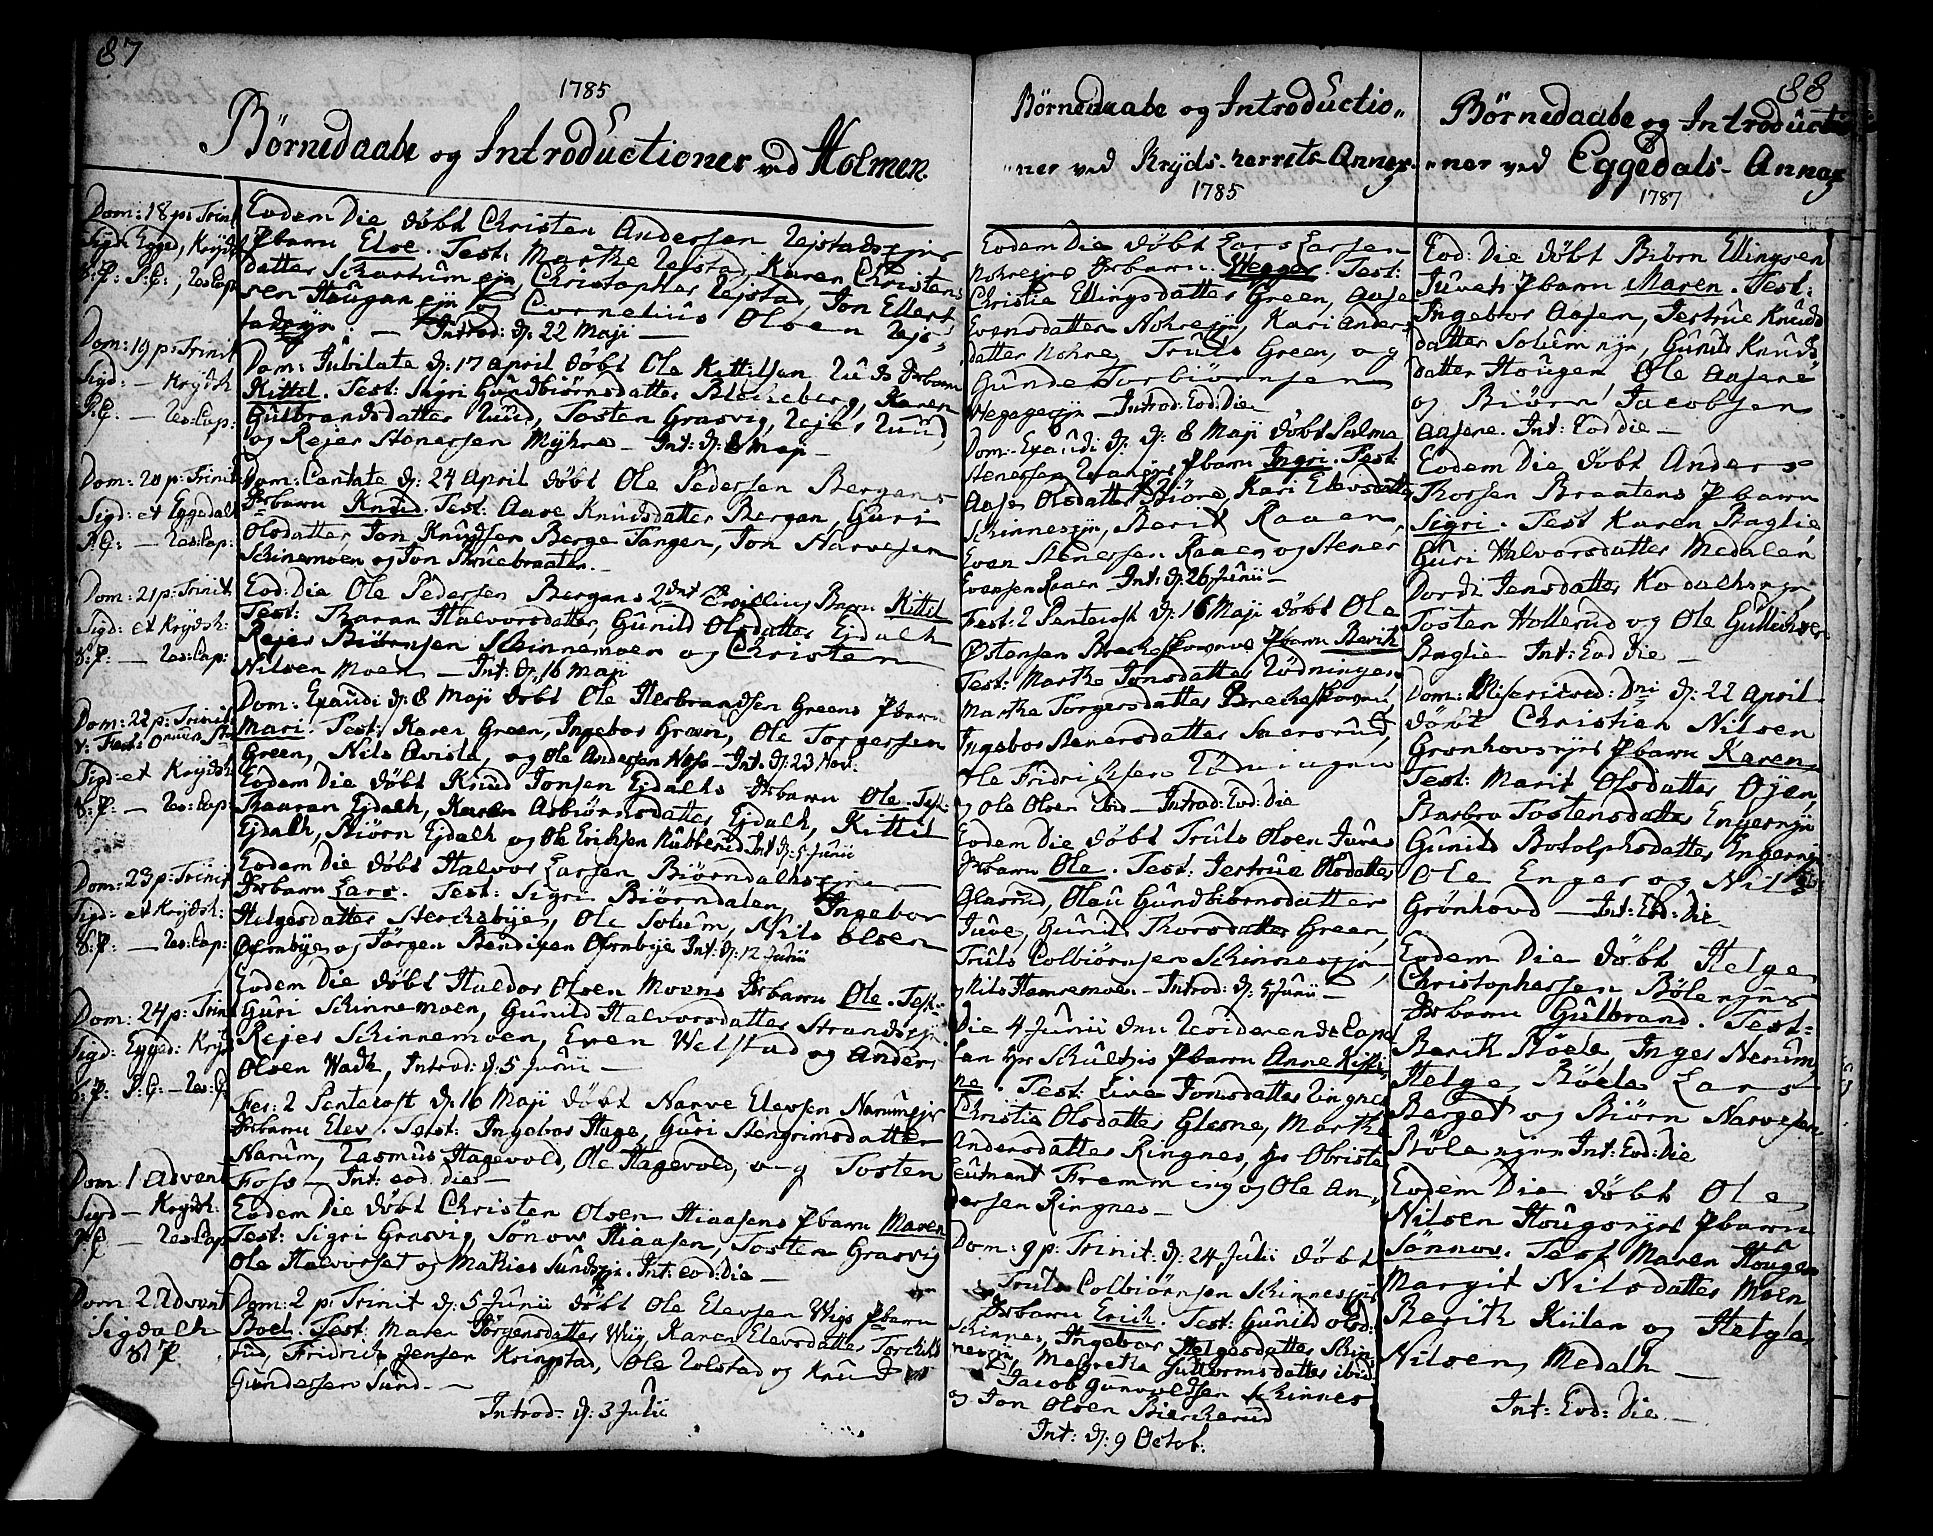 87
1785
Børnedaabe og Introductioner ved Holmen.
Dom: 18 p: Trinit
Sigd: Egged, Krydsh
S: P: P: C:, Res: Cap
Dom: 19 p: Trinit
Sigd: — Krydsh
P: C: — Res: Cap:
Dom: 20 p: Trinit
Sigd: et Eggedalh
P: C: — Res: Cap:
Dom: 21 p: Trinit
Sigd: et Krydsh:
S: P: — Res: Cap:
Dom: 22 p: Trinit
Sigd: et Krydsh
S: P: — Res: Cap:
Dom: 23 p: Trinit
Sigd: et Krydsh:
S: P: — Res: Cap:
Dom: 24 p: Trinit
Sigd: Egged: Kryds
S: P: P: C: — Res: C
Dom 1 Advent
Sigd — Krydsh:
P: C — Res: Cap
Dom 2 Advent
Sigdalh
S: P.
Eodem Die døbt Christen Andersen Rejstadsejes
Pbarn Else. Test: Marthe Rejstad, Karen Christens
datter Skartum eje, Christopher Rejstad, Jon Ellert
sen Hougan eje Cornelius Olsen Rejs
tadeje. — Introd: d: 22 Maji —
Dom: Jubilate d: 17 April døbt Ole Kittilsen Ruds Drbarn
Kittil. Test: Sigri Gundbiørnsdatter Blekeberg, Karen
Gulbransdatter Ruud, Tosten Grasvig, Rejer Ruud,
og Rejer Stenersen Myhre — Int: d: 8 Map —
Dom: Cantate d: 24 April døbt Ole Pedersen Bergans
Drbarn Knud. Test: Aase Knudsdatter Bergan, Guri
Olsdatter Jon Knudsen Berge Tangen, Jon Narvesen
Skinnemoen og Jon Skruebraaten. —
Eod: Die Ole Pedersen Bergans 2det Tvilling Barn Kittil
Test: Karan Halvorsdatter, Gunild Olsdatter Ejdalh
Rejer Biørnsen Skinnemoen og Christen
Nilsen Moen — Int: d: 16 Maji
Dom: Exaudi d: 8 Maji døbt Ole Herbrandsen Greens Pbarn
Mari. Test: Karen Green, Ingebor Green, Ole Torgersen
Green, Nils Qvisle, og Ole Andersen Næss — Int: d: 23 Nov:
Eodem Die døbt Knud Jonsen Ejdalhs Drbarn Ole. Test:
Kaaren Ejdalh, Karen Asbiørnsdatter Ejdalh, Kittil
Ejdalh, Biørn Ejdalh og Ole Erichsen Kubberud Int d: 5 Junii
Eodem Die døbt Halvor Larsen Biørndalhsejes
Drbarn Lars. Test: Sigri Biørndalen, Ingebor
Helgesdatter Sterchebye, Ole Solum, Nils Olsen
Ofrnbye og Jørgen Bendixen Ofrnbye Int: d: 12 Junii
Eodem Die døbt Haldor Olsen Moens Drbarn Ole. Test:
Guri Skinnemoen, Gunild Halvorsdatter Strandseje
Rejer Skinnemoen, Even Welstad og Anders
Olsen Wadh, Introd: d: 5 Junii —
Fer: 2 Pentecost d: 16 Maji døbt Narve Elevsen Narumejes
Drbarn Elev. Test: Ingebor Hage, Guri Stengrimsdatter
Narum, Rasmus Hagevold, Ole Hagevold, og Tosten
Foss — Int: eod: die —
Eodem Die døbt Christen Olsen Hiaasens Pbarn Maren
Test: Sigri Grasvig, Sønov Hiaasen, Tosten Grasvig
Ole Halvorset og Mathies Sundseje. Int: eod: die —
Dom: 2 p: Trinit d: 5 Junii døbt Ole Elevsen Wigs Pbarn
Boel. Test: Maren Jørgensdatter Wiig, Karen Elevsdatter Torchils
rud, Fridrich Jensen Kringstad, Ole Rolstad og Knud
Gundersen Sund. —
Introd: d: 3 Julii
Børnedaabe og Introductio„
„ner ved Kryds-herrets-Annex
1785
Eodem Die døbt Lars Larsen
Nohrejes Drbarn Hegge. Test:
Christie Ellingsdatter Green, Aase
Evensdatter Nohreeje, Kari Anders
datter Nohre, Truls Green, og
Gunder Torbiørnsen
— Introd: Eod: Die
Dom: Exaudi d: d: 8 Maji døbt Palme
Stenersen Pbarn Ingri. Test
Aase Olsdatter Biøre, Kari Elevsdatter
Skinneseje, Berit Raaen,
Even Stenersen Raaen og Stener
Evensen Raaen Int: d: 26 Junii —
Fest: 2 Pentecost d: 16 Maji døbt Ole
Østensen Brechefossens Pbarn Berith
Test: Marthe Jonsdatter Rødningen
Marthe Torgersdatter Brechefossen,
Ingebor Stenersdatter Snersrud,
Ole Fridrichsen Rødningen
og Ole Olsen ibid — Introd: Eod: Die
Eodem Die døbt Truls Olsen Juves
Drbarn Ole. Test: Jertrue Olsdatter
Glesrud, Olau Gundbiørnsdatter
Juve, Gunild Thorsdatter Green,
Truls Colbiørnsen Skinneseje
og Nils Hamremoen — Introd: d: 5 Junii —
Die 4 Junii den Residerende Cape
lan hr Schultzis Pbarn Anne Kisti
ne. Test: Live Jonsdatter Ringnes
Christie Olsdatter Glesne, Marthe
Andersdatter Ringnes, hr Obriste
Leutnant Fremming og Ole An„
dersen Ringnes —
Dom: 9 p: Trinit: d: 24 Julii døbt
Truls Colbiørnsen Skinnesejes
Drbarn Erich. Test: Gunild Olsd:
Skinnes, Ingebor Helgesdatter Skin
neseje, Magretha Guttormsdatter ibid
Jacob Gunvoldsen Skinnes
og Jon Olsen Bierkerud
Int: d: 9 Octob:
88
Børnedaabe og Introductio
„ner ved Eggedals-Annex
1787
Eod: Die døbt Biørn Ellingsen
Juveh Pbarn Maren. Test:
Ingebor Aasen, Jertrue Knuds
datter Solum eje, Gunild Knuds
datter Hougen Ole Aasene
og Biørn Jacobsen
Aasene. Int: Eod die —
Eodem Die døbt Anders
Thorsen Braatens Pbarn
Sigri. Test Karen Baglie
Guri Halvorsdatter Medalen
Dordi Jensdatter Kodalhseje
Tosten Hollerud og Ole Gulliksen
Baglie Int: Eod die —
Dom: Misericord: Dni d: 22 April
døbt Christian Nilsen
Grønhovsejes Pbarn Karen
Test: Marit Olsdatter Øyen,
Barbro Tostensdatter Engereje
Gunild Botolphsdatter Engereje
Ole Enger og Nils
Grønhovd — Int: Eod: Die —
Eodem Die døbt Helge
Christophersen Bølensejes
Drbarn Gulbrand. Test:
Berith Bøele, Inger Nerum,
Helge Bøele Lars
Berget og Biørn Narvesen
Bøle eje Int: Eod: Die
Eodem Die døbt Ole
Nilsen Hougsejes Pbarn
Sønnov. Test Maren Hougen
Margit Nilsdatter Moen
Berith Kiilen og Helge
Nilsen, Medalh —
Int: Eod: Die —